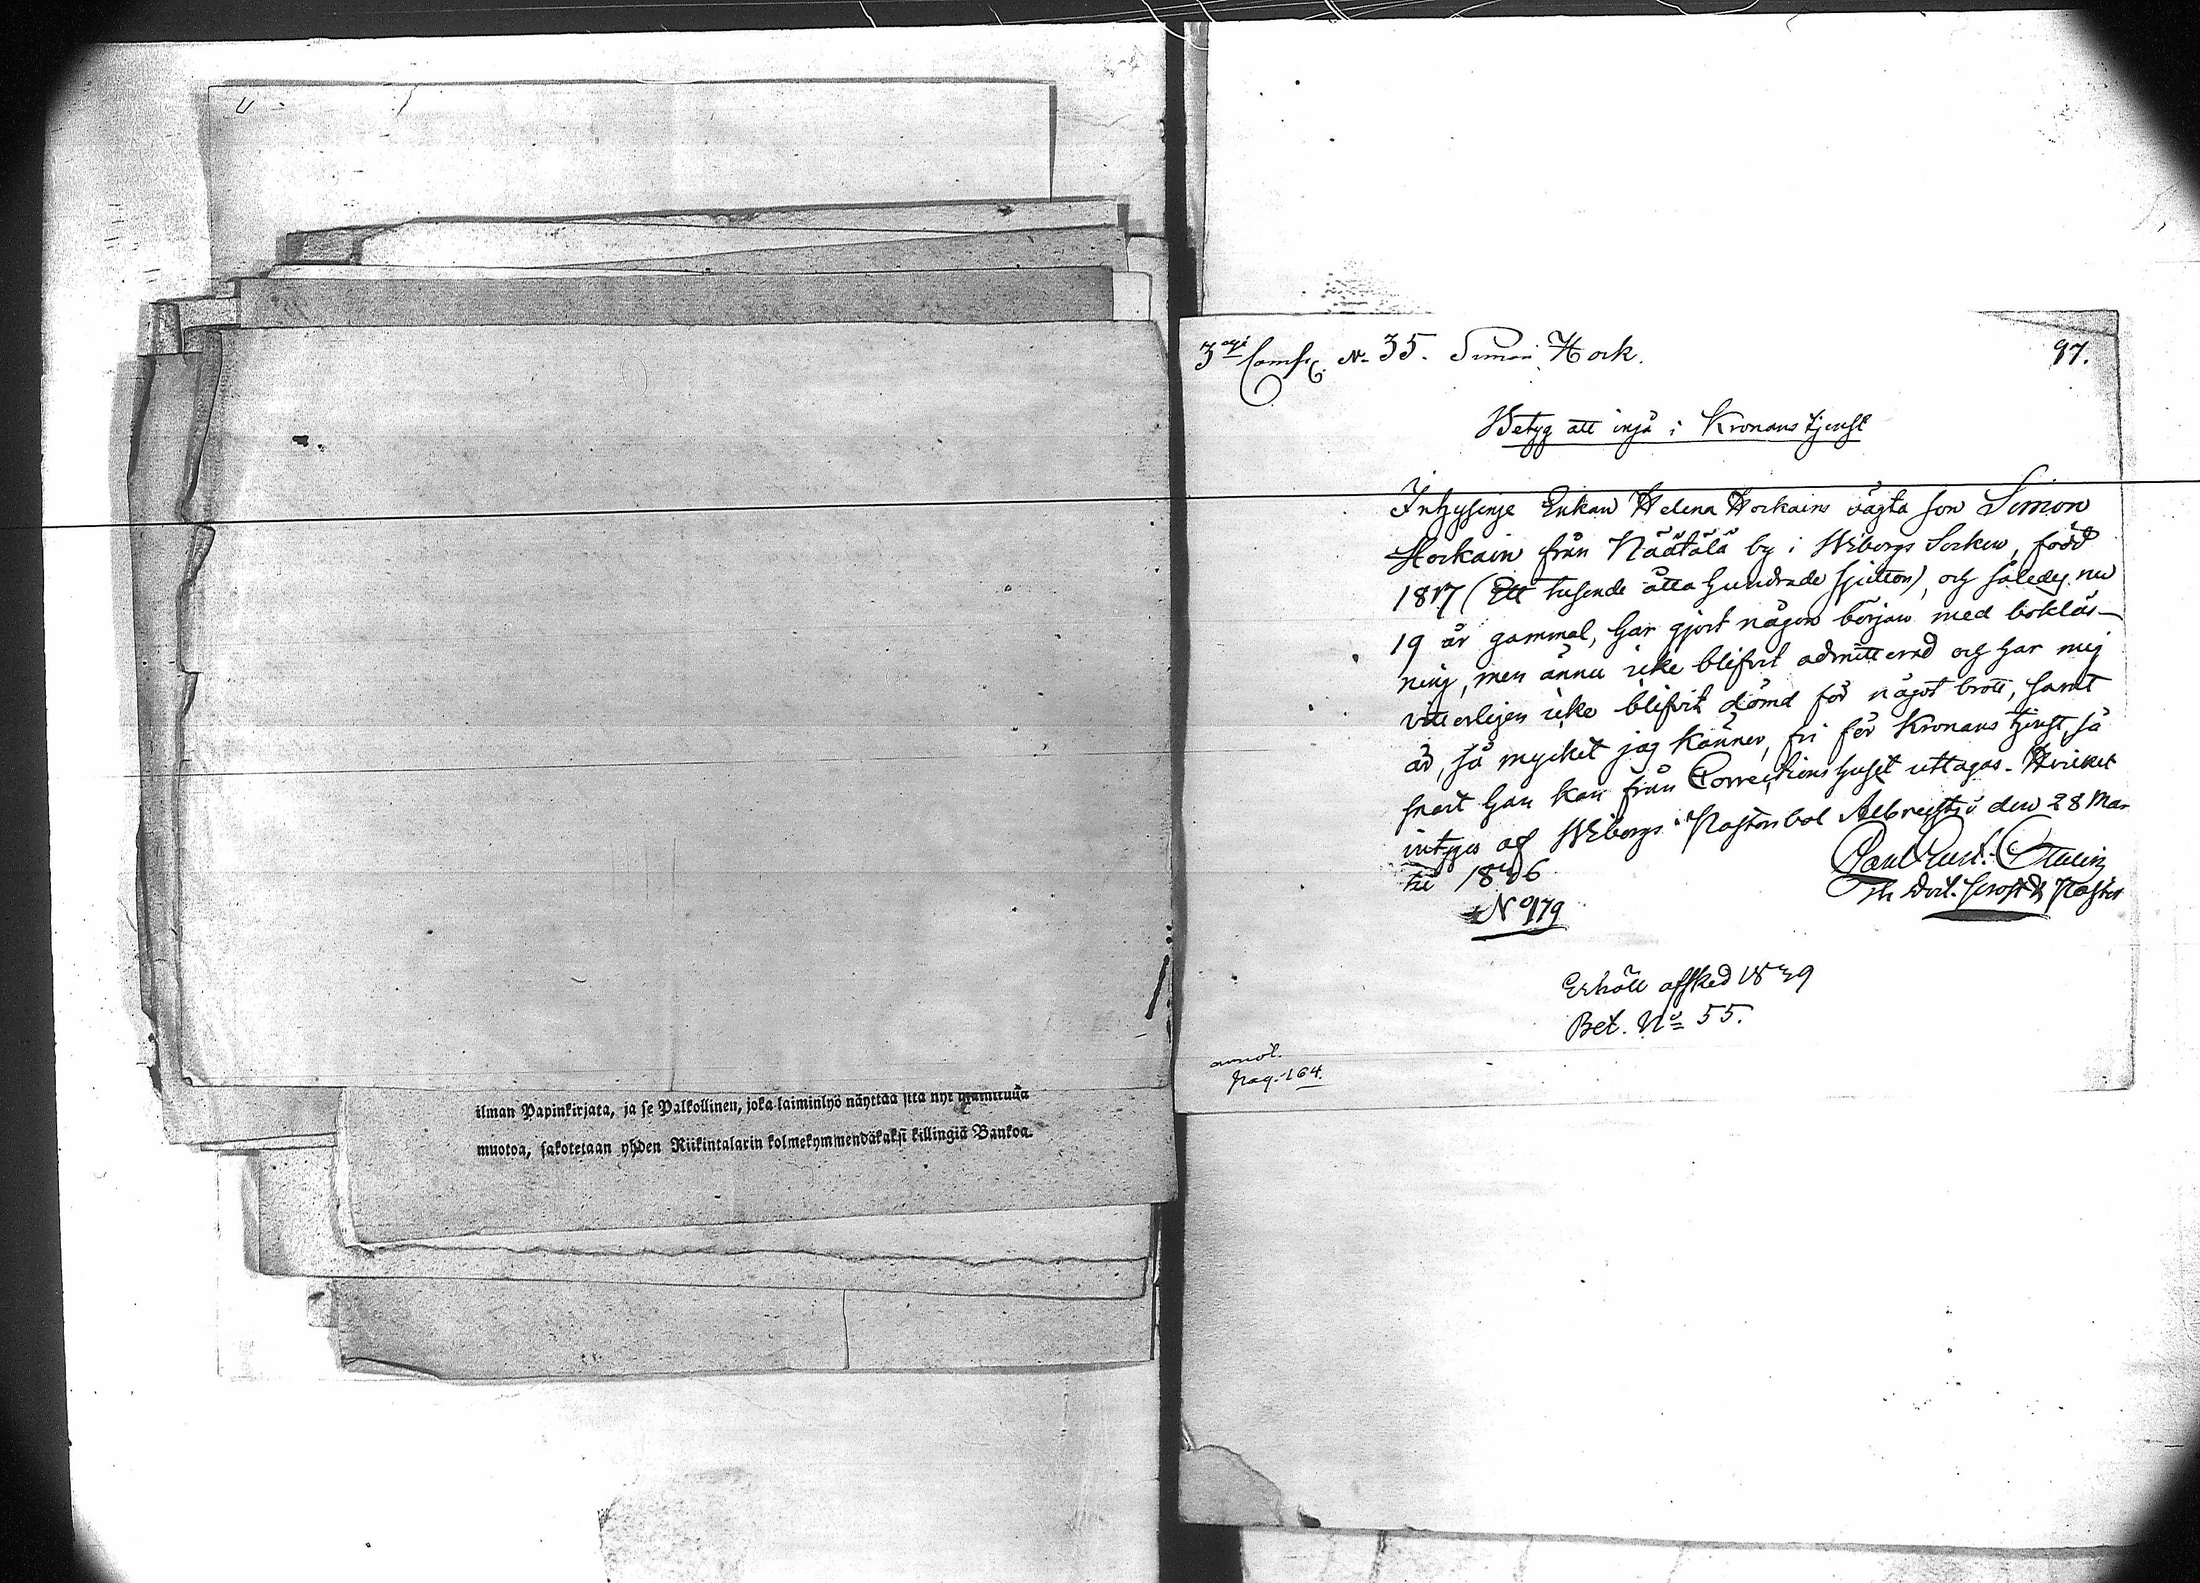 ilman Papinkirjata, ja se Palkollinen, joka laiminlyö näyttää sitä nyt
muotoa, sakotetaan yhden Riikintalarin kolmekymmendäkaksi killingiä Bankoa.
3 Comp. No 35. Simon Hork.
97.
Betyg att ingå i Kronans tjenst
Enkan Helena Horkains ägta son Simon
Horkain från Näätälä by i Wiborgs Socken, född
1817 (Ett tusende åtta hundrade sjutton), och således nu
19 år gammal, har gjort någon början med bokläs-
ning, men ännu icke blifvit admitterad och har mig
vitterligen icke blifvit dömd för något brott, samt
är, så mycket jag känner, fri för Kronans tjenst, så
snart han kan från Correctionshuset uttagas. Hvilket
intygas af Wiborgs den 28 Mar-
tii 1836
No 179
Erhöll afsked 1839
Bet. No 55.
pag. 164.